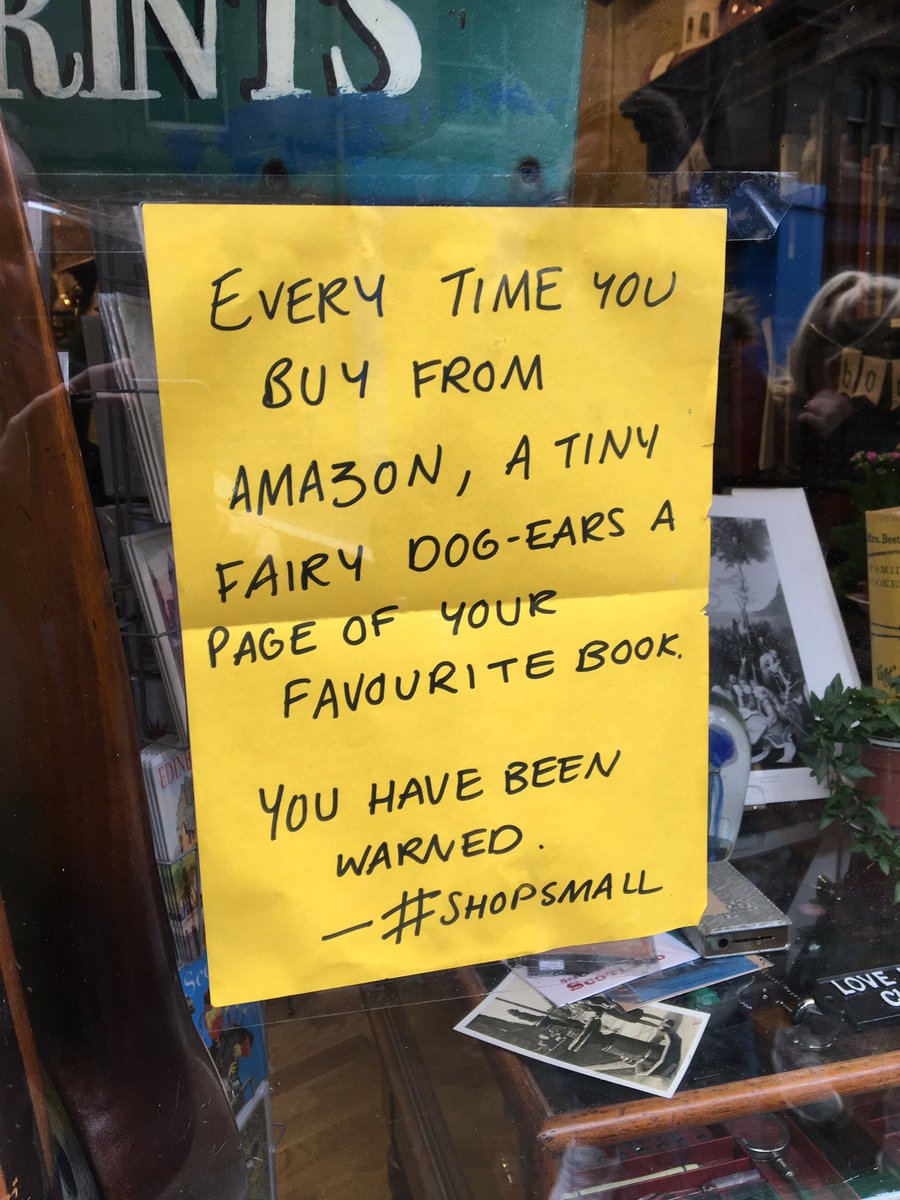 RINTS
EVERY TIME YOU
BUY FROM
AMAZON, A TINY
FAIRY DOG-EARS A
PAGE OF YOUR
FAVOURITE BOOK.
YOU HAVE BEEN
WARNED.
—#SHOPSMALL
bo
Mrs. Beet
FAMI
COOKE
EDINB
Sco
LOVE